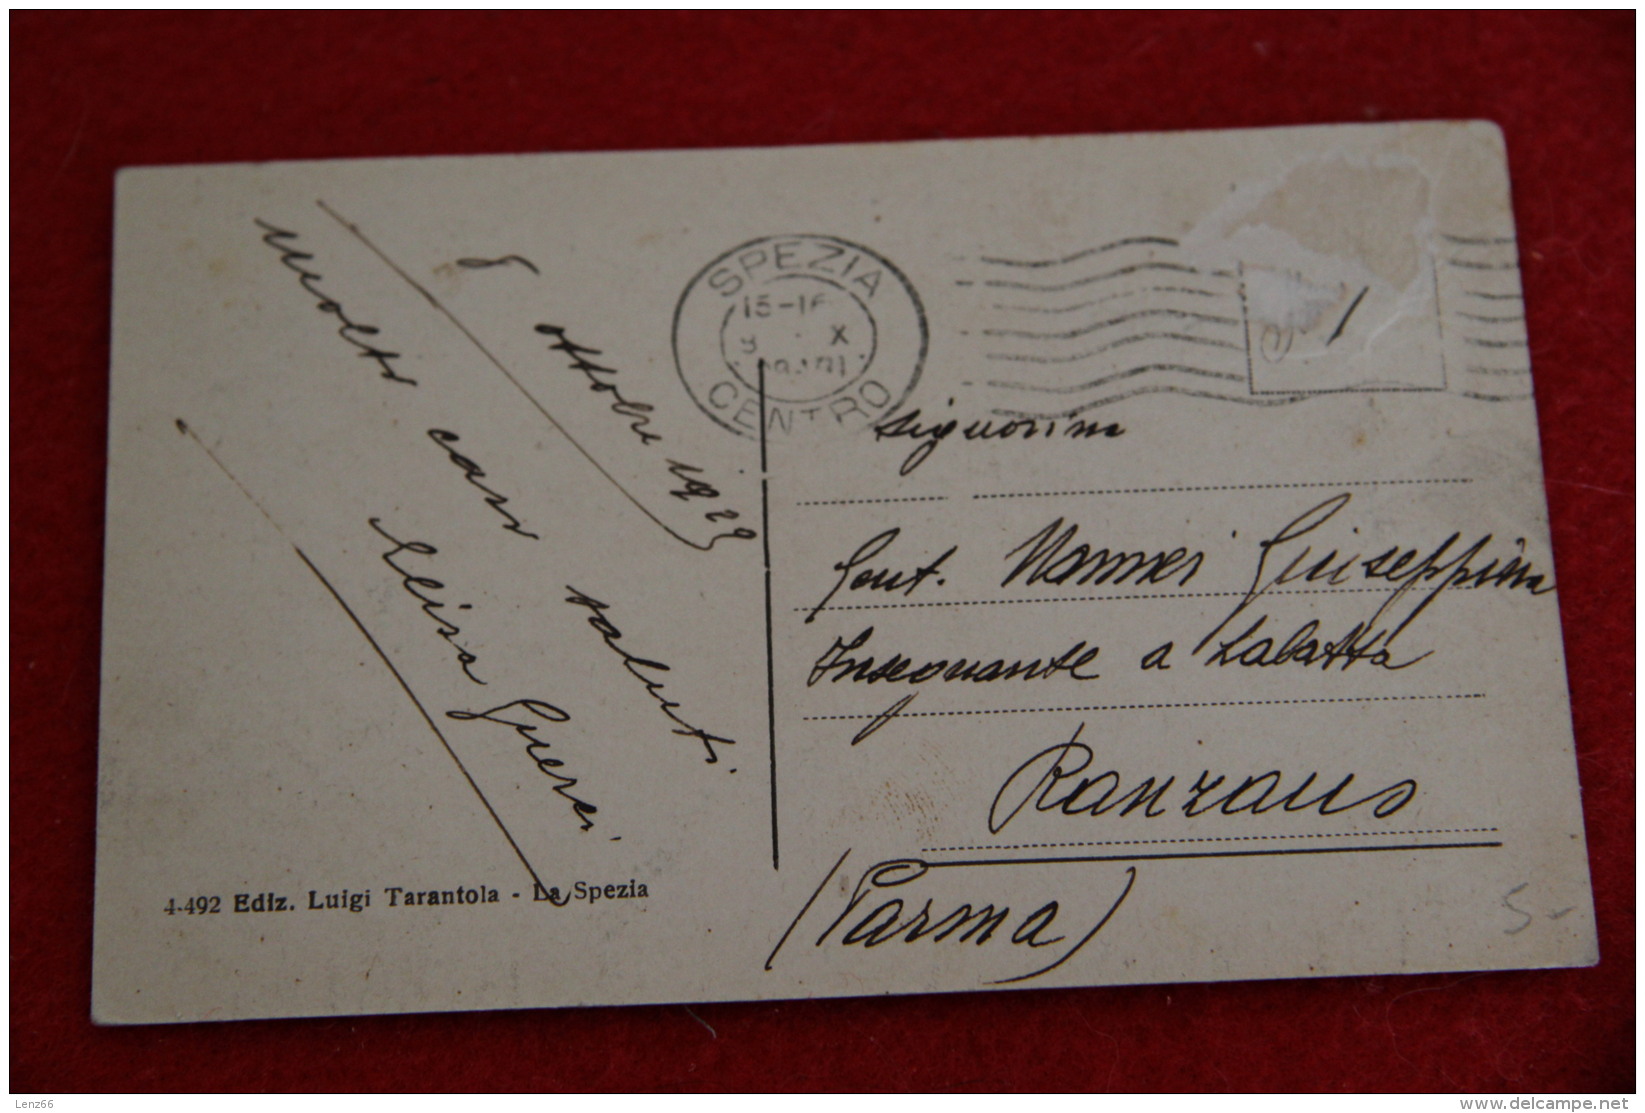 8 ottobre 1929
molti cari saluti
Elisa Guerci
4-492 Ediz. Luigi Tarantola - La Spezia
SPEZIA
15-16
X
CENTRO
1
Signorina
Gent. Giuseppina
Insegnante a Lalatta
Ranzano
(Parma)
5-
Lenz66
www.delcampe.net